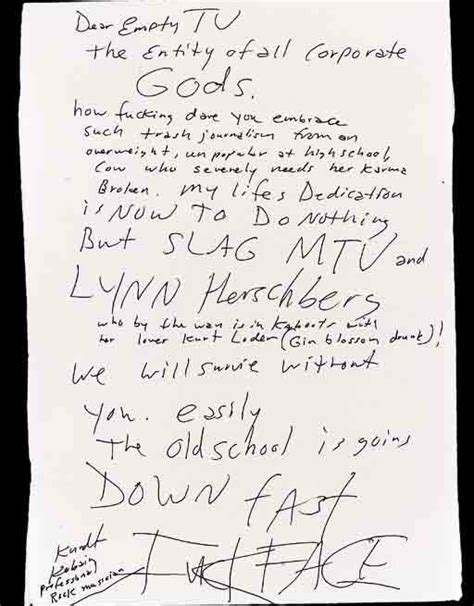 Dear Empty TV
the Entity of all Corporate
Gods.
how fucking dare you embrace
such trash journalism from an
overweight, un popular at high school,
Cow who severely needs her Karma
Broken. my life's Dedication
is NOW TO Do Nothing
But SLAG MTV and
LYNN Herschberg
who by the way is in Kahoots with
her lover Kurt Loder (Gin blossom drunk)!
we will survie without
you. easily
The oldschool is going
DOWN fast
Kurdt
Kobain
professional
Rock musician
FuckFACE